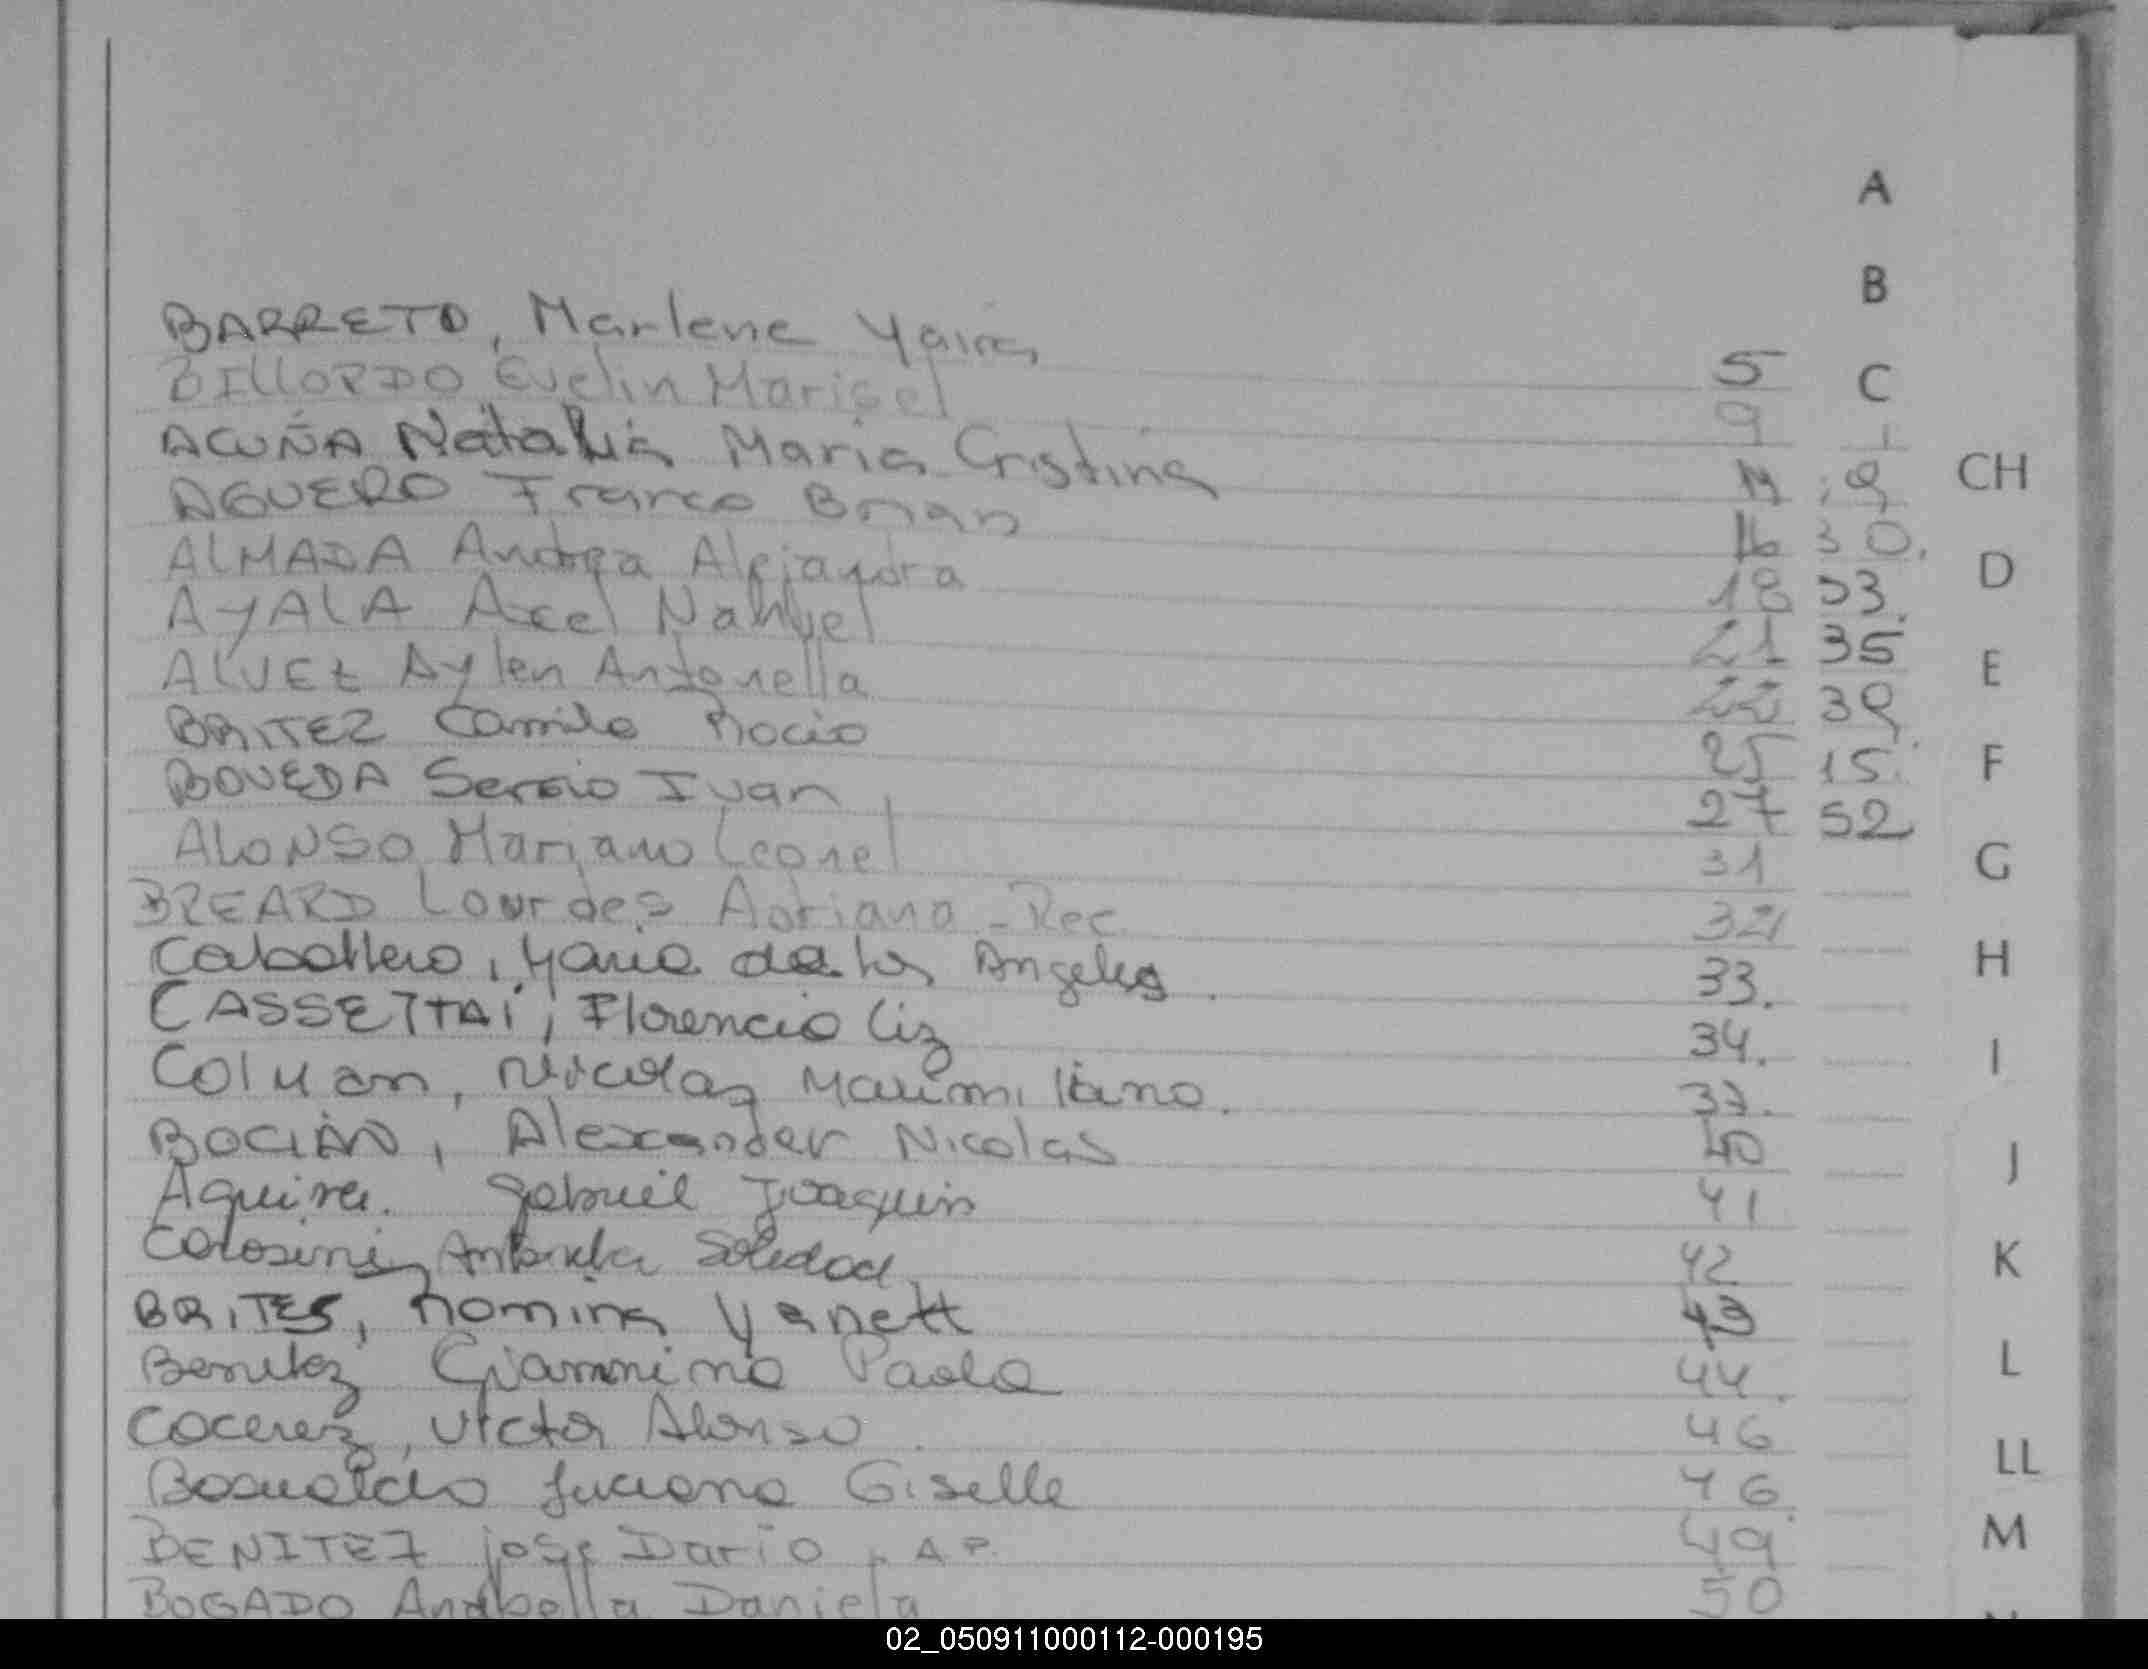 A
B
BARRETO, Marlene Yaira 5 C
BILLORDO Evelin Marisel 9
ACUÑA Natalia Maria Cristina CH
AGUERO Franco Brian 16 30.
ALMADA Andrea Alejandra 18 33. D
AYALA Axel Nahuel 21 35
ALVEZ Aylen Antonella 22 39 E
BRITEZ Camila Rocio 25 15. F
BOVEDA Sergio Ivan 27 52
ALONSO Mariano Leonel 31 G
BREARD Lourdes Adriana - Rec. 32
Caballero, Maria de los Angeles. 33. H
CASSETTAI, Florencia Liz 34.
Colman, Nicolas Maximiliano. 37. I
BOCIAN, Alexander Nicolas 40 J
Aguirre. Gabriel Joaquin 41
Colosini, Soledad 42 K
BRITES, Romina Yanett 43
Benitez Giannina Paola 44. L
Cocerez, Victor Alonso. 46
Luciana Giselle 46. LL
BENITEZ jose Dario, AP. 49 M
BOGADO Anabella Daniela 50
02_050911000112-000195